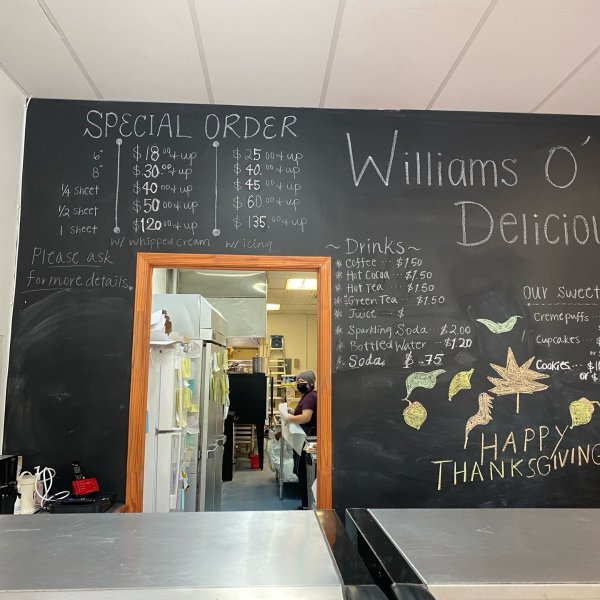 SPECIAL ORDER
6" $18.00 & up $25.00 & up
8" $30.00 & up $40.00 & up
1/4 sheet $40.00 & up $45.00 & up
1/2 sheet $50.00 & up $60.00 & up
1 sheet $120.00 & up $135.00 & up
w/ whipped cream w/ icing
Please ask
for more details.
Williams O'
Deliciou
~Drinks~
* Coffee ... $1.50
* Hot Cocoa ... $1.50
* Hot Tea ... $1.50
* Green Tea ... $1.50
* Juice ... $
* Sparkling Soda $2.00
* Bottled Water .. $1.20
* Soda. $ .75
Our Sweet
Creme puffs ...
Cupcakes ..
Cookies ... $1
or $
HAPPY
THANKSGIVING